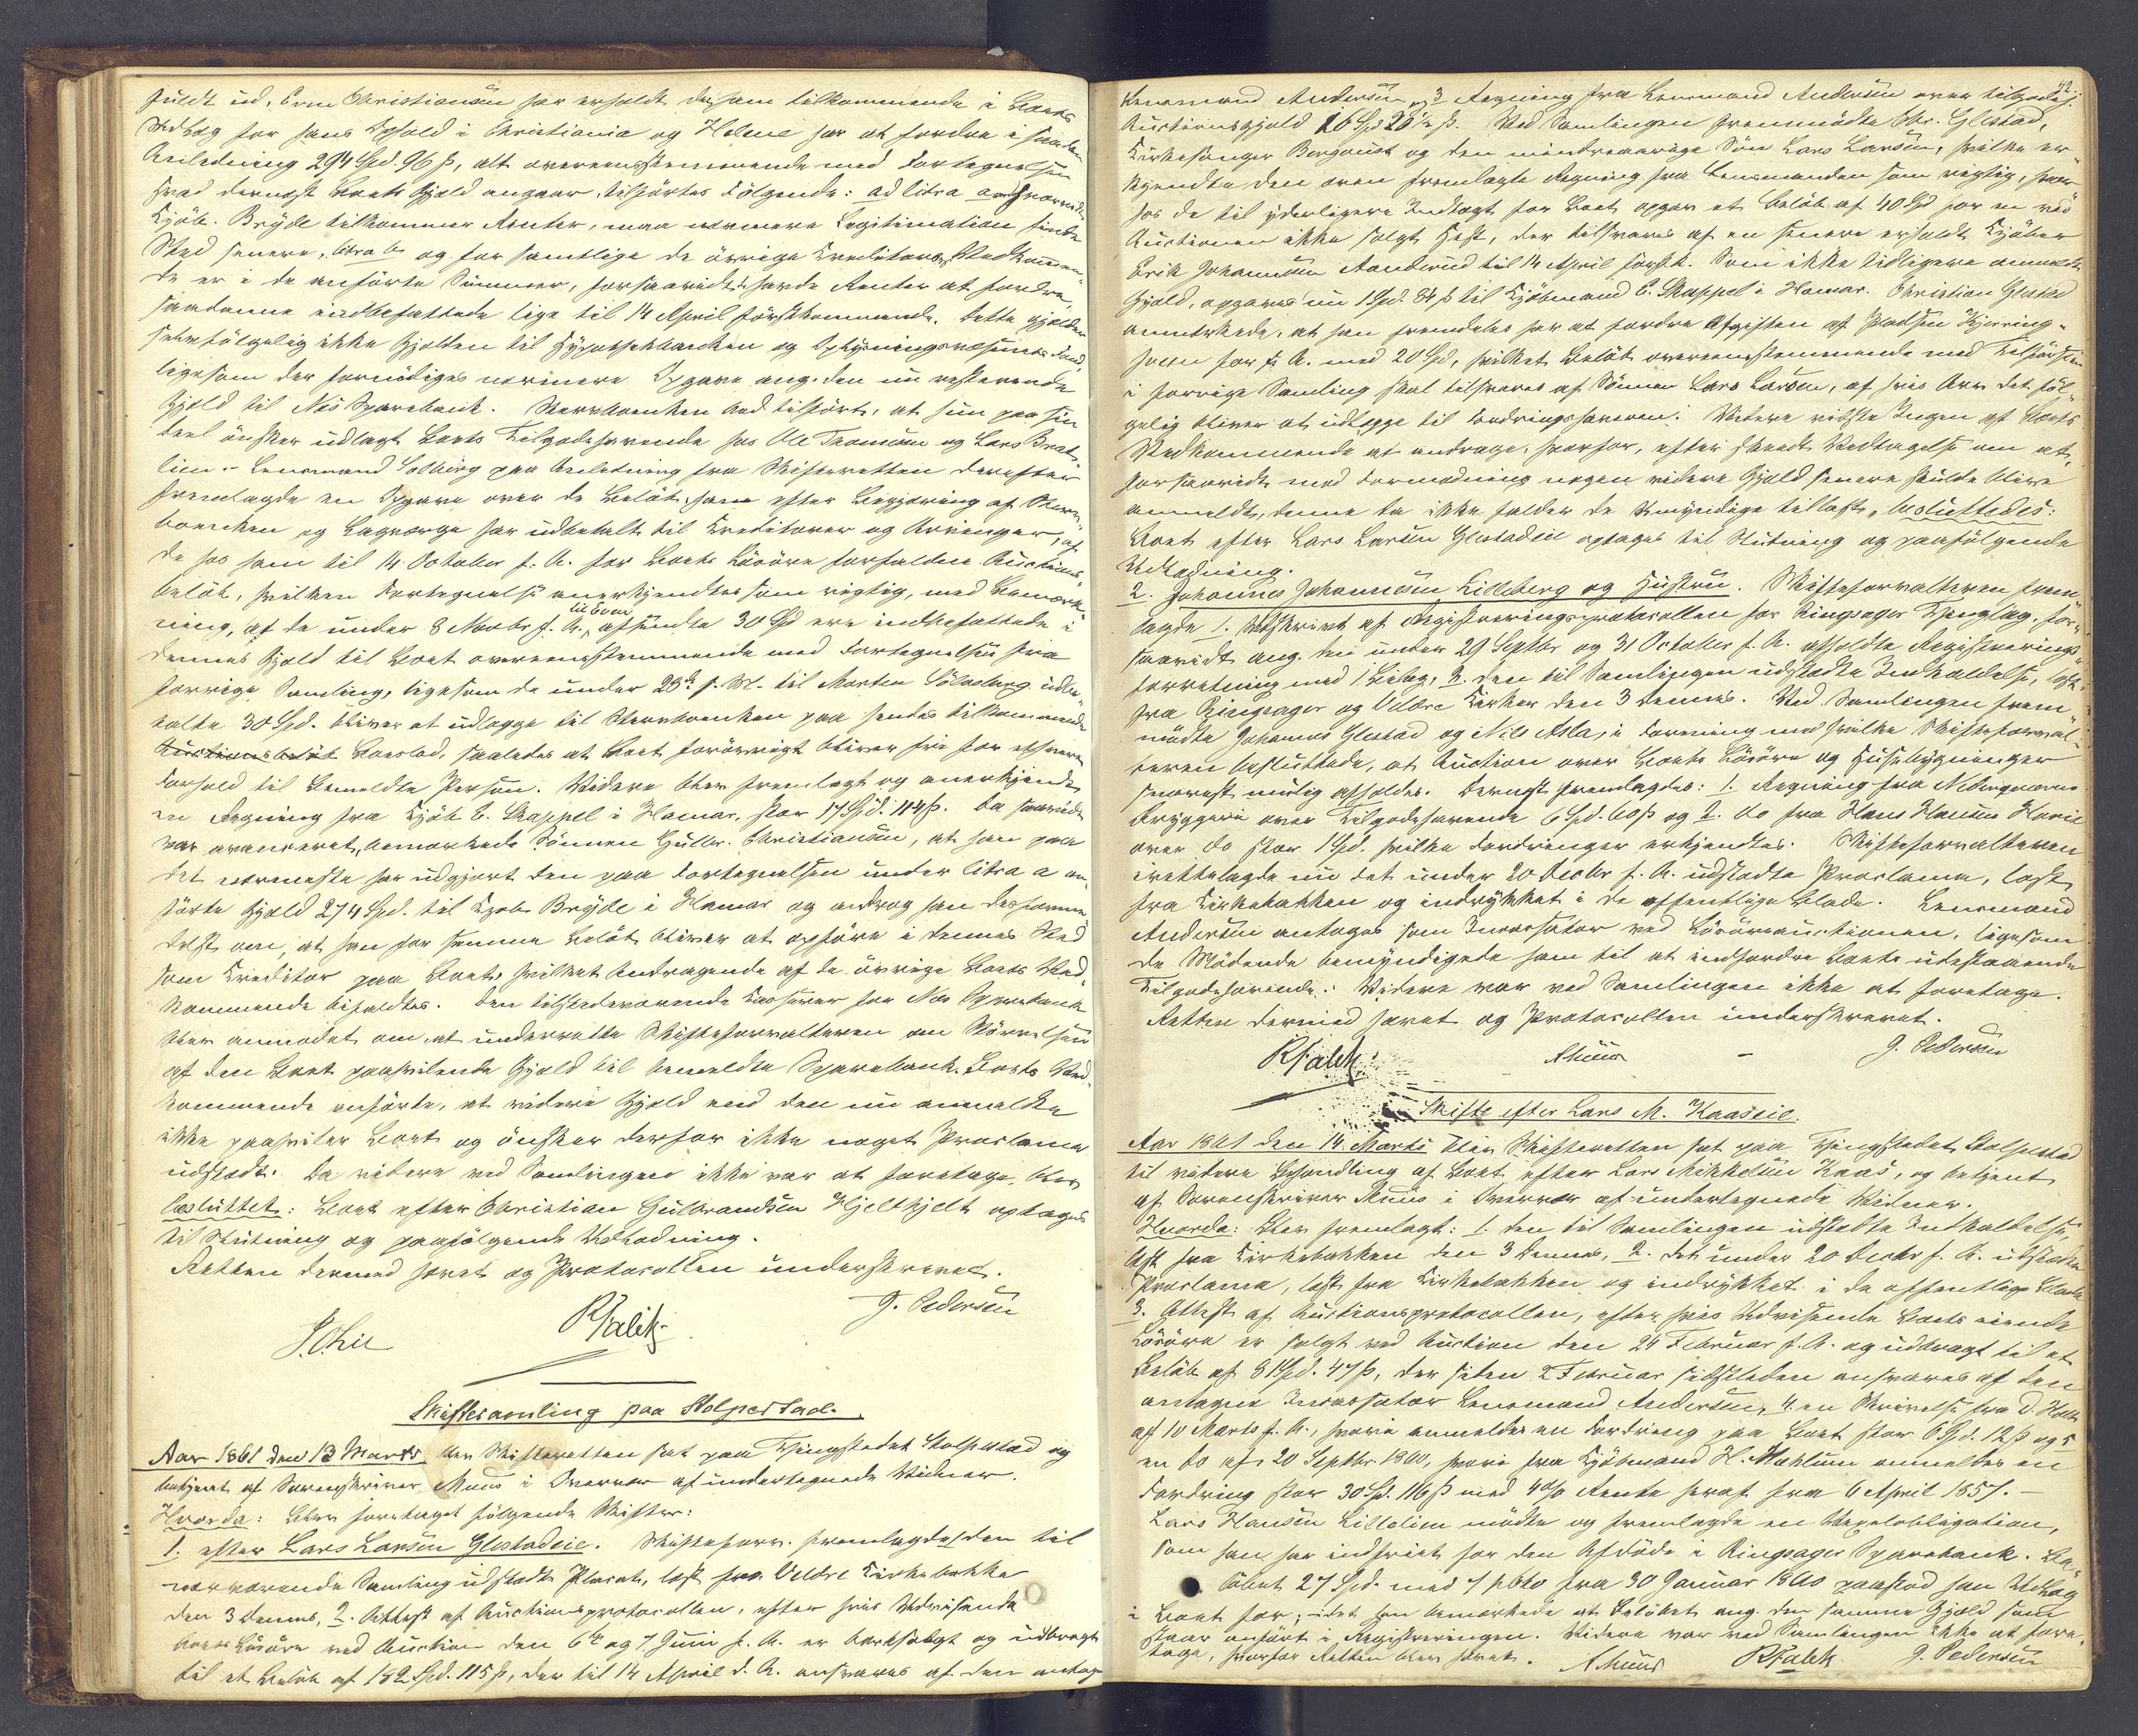 fuldt ud. Even Christiansen har erholdt den ham tilkommende i Boets
Udlæg for hans Ophold i Christiania og Helene har at fordre i saadan
Anledning 294 Spd. 96 ß, alt overeensstemmende med Fortegnelsen
Hvad dernæst Boets Gjæld angaaer, tilførtes Følgende: ad litra a
Kjøb. Bryde tilkommer Renter, maa nærmere Legitimation finde
Sted senere, litra b og for samtlige de øvrige Creditorers Vedkommen-
de er i de anførte Summer, forsaavidt havde Renter at fordre,
saadanne indbefattede lige til 14 April førstkommende. Dette gjælder
selvfølgelig ikke Gjælden til Hypothekbanken og Oplysningsvæsenets Fond,
ligesom der fornødiges nærmere Opgave ang. den nu resterende
Gjæld til Næs Sparebank. Stervboenken bad tilført, at hun paa sin
Deel ønsker udlagt Boets Tilgodehavende hos Ole Thomasen og Lars Brat-
lien. - Lensmand Solberg paa Anledning fra Skifteretten derefter
fremlagde en Opgave over de Beløb, som efter Begjæring af Sterv-
boenken og Laugværge har udbetalt til Creditorer og Arvinger, af
de hos ham til 14 October f. A. for Boets Løsøre forfaldne Auctions-
beløb, hvilken Fortegnelse anerkjendtes som rigtig, med Bemærk-
ning, at de under 8 Novbr f. A. til Even afsendte 30 Spd ere indbefattede i
dennes Gjæld til Boet overeensstemmende med Fortegnelsen fra
forrige Samling, ligesom de under 28de f. M. til Morten Sølvsberg udbe-
talte 30 Spd. bliver at udlægge til Stervboenken paa hendes tilkommende
Auctionsbeløb Boeslod, saaledes at Boet forøvrigt bliver fri for ethvert
Forhold til bemeldte Person. Videre blev fremlagt og anerkjendt
en Regning fra Kjøb. C. Skappel i Hamar, stor 17 Spd. 114 ß. Da saavidt
var avanceret, bemærkede Sønnen Gulbr. Christiansen, at han paa
det nærmeste har udgjort den paa Fortegnelsen under litra a an-
førte Gjæld 274 Spd. til Kjøb. Bryde i Hamar og androg han desformedelst
om, at han for samme Beløb bliver at opføre i dennes Sted
som Creditor paa Boet, hvilket Andragende af de øvrige Boets Ved-
kommende bifaldtes. Den tilstedeværende Kasserer for Næs Sparebank
blev anmodet om at underrette Skifteforvalteren om Størrelsen
af den Boet paahvilende Gjæld til bemeldte Sparebank. Boets Ved-
kommende anførte, at videre Gjæld end den nu anmeldte
ikke paahviler Boet og ønsker derfor ikke noget Proclama
udstedt. Da videre ved Samlingen ikke var at foretage, blev
besluttet: Boet efter Christian Gulbrandsen Hjelthjelt optages
til Slutning og paafølgende Udlodning.
Retten dermed hævet og Protocollen underskrevet.
RFalck G. Pedersen
Skiftesamling paa Stolpestad.
Aar 1861 den 13 Marts blev Skifteretten sat paa Thingstedet Stolpestad og
betjent af Sorenskriver Muus i Overvær af undertegnede Vidner.
Hvorda: Blev foretaget følgende Skifter:
1. efter Lars Larsen Glestadeie. Skifteforv. fremlagde 1 den til
nærværende Samling udstedte Placat, læst fra Veldre Kirkebakke
den 3 dennes, 2. Attest af Auctionsprotocollen, efter hvis Udvisende
Boets Løsøre ved Auction den 6te og 7 Juni f. A. er bortsolgt og udbragt
til et Beløb af 182 Spd. 115 ß, der til 14 April d. A. ansvares af den antagne
Lensmand Andersen og 3 Regning fra Lensmand Andersen over tilgode-
Auctionsgjæld 16 Spd 28 1/2 ß. Ved Samlingen fremmødte Chr. Glestad,
Kirkesanger Bergqvist og den mindreaarige Søn Lars Larsen, hvilke er-
kjendte den oven fremlagte Regning fra Lensmanden som rigtig, hvor-
hos de til yderligere Indtægt for Boet opgav et Beløb af 40 Spd for en ved
Auctionen ikke solgt Hest, der tilsvares af en senere erholdt Kjøber
Erik Johannesen Aanderud til 14 April førstk. Som ikke tidligere anmeldt
Gjæld, opgaves nu 1 Spd. 84 ß til Kjøbmand C. Skappel i Hamar. Christian Glestad
anmærkede, at han fremdeles har at fordre Afgiften af Pladsen Kjerring-
sveen for f. A. med 20 Spd, hvilket Beløb overeensstemmende med Tilførsel
i forrige Samling skal tilsvares af Sønnen Lars Larsen, af hvis Arv det føl-
gelig bliver at udlægge til Fordringshaveren. Videre vidste Ingen af Boets
Vedkommende at andrage, hvorfor, efter skeedt Vedtagelse om at,
forsaavidt mod Formodning nogen videre Gjæld senere skulde blive
anmeldt, denne da ikke falder de Umyndige tillast, besluttedes:
Boet efter Lars Larsen Glestadeie optages til Slutning og paafølgende
Udlodning.
2. Johannes Johannesen Lilleberg og Hustru. Skifteforvalteren frem-
lagde 1. Udskrivt af Registreringsprotocollen for Ringsager Thinglag, for-
saavidt ang. den under 29 Septbr og 31 October f. A. afholdte Registrerings-
forretning med 1 Bilag, 2. den til Samlingen udstedte Indkaldelse, læst
fra Ringsager og Veldre Kirker den 3 dennes. Ved Samlingen frem-
mødte Johannes Glestad og Nils Asla, i Forening med hvilke Skifteforval-
teren besluttede, at Auction over Boets Løsøre og Husebygninger
snarest mulig afholdes. Dernæst fremlagdes: 1. Regning fra Nedreqværn
Bryggeri over Tilgodehavende 6 Spd. 60 ß og 2. do fra Hans Hansen
over do stor 1 Spd. hvilke Fordringer erkjendtes. Skifteforvalteren
irettelagde nu det under 20 Decbr f. A. udstedte Proclama, læst
fra Kirkebakken og indrykket i de offentlige Blade. Lensmand
Andersen antages som Incassator ved Løsøreauctionen, ligesom
de Mødende bemyndigede ham til at indfordre Boets udestaaende
Tilgodehavende. Videre var ved Samlingen ikke at foretage.
Retten dermed hævet og Protocollen underskrevet.
RFalck AMuus - G. Pedersen
Skifte efter Lars M. Kaaseie.
Aar 1861 den 14. Marts blev Skifteretten sat paa Thingstedet Stolpestad
til videre Behandling af Boet efter Lars Mikkelsen Kaas, og betjent
af Sorenskriver Muus i Overvær af undertegnede Vidner.
Hvorda: Blev fremlagt: 1. den til Samlingen udstedte Indkaldelse,
læst fra Kirkebakken den 3 dennes, 2. det under 20 Decbr f. A. udstedte
Proclama, læst fra Kirkebakken og indrykket i de offentlige Blade
3. Attest af Auctionsprotocollen, efter hvis Udvisende Boets eiende
Løsøre er solgt ved Auction den 24 Februar f. A. og udbragt til et
Beløb af 81 Spd. 47 ß, der siden 2 Februar sidstleden ansvares af den
antagne Incassator Lensmand Andersen, 4. en Skrivelse fra D. Holt
af 10 Marts f. A., hvori anmeldes en Fordring paa Boet stor 6 Spd. 12 ß og 5
en do af 20 Septbr. 1860, hvori fra Kjøbmand H. Mæhlum anmeldes en
Fordring stor 30 Spd. 116 ß med 4 % Rente heraf fra 6 April 1857. -
Lars Hansen Lillelien mødte og fremlagde en Vexelobligation,
som han har indfriet for den Afdøde i Ringsager Sparebank. Be-
løbet 27 Spd. med fra 30 Januar 1860 paastod han Udlæg
i Boet for; idet han bemærkede at Beløbet ang. den samme Gjæld som
staar anført i Registreringen. Videre var ved Samlingen ikke at fore-
tage, hvorfor Retten blev hævet. AMuus RFalck G. Pedersen